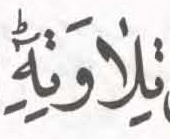 تِلَاوَتِهٖؕ